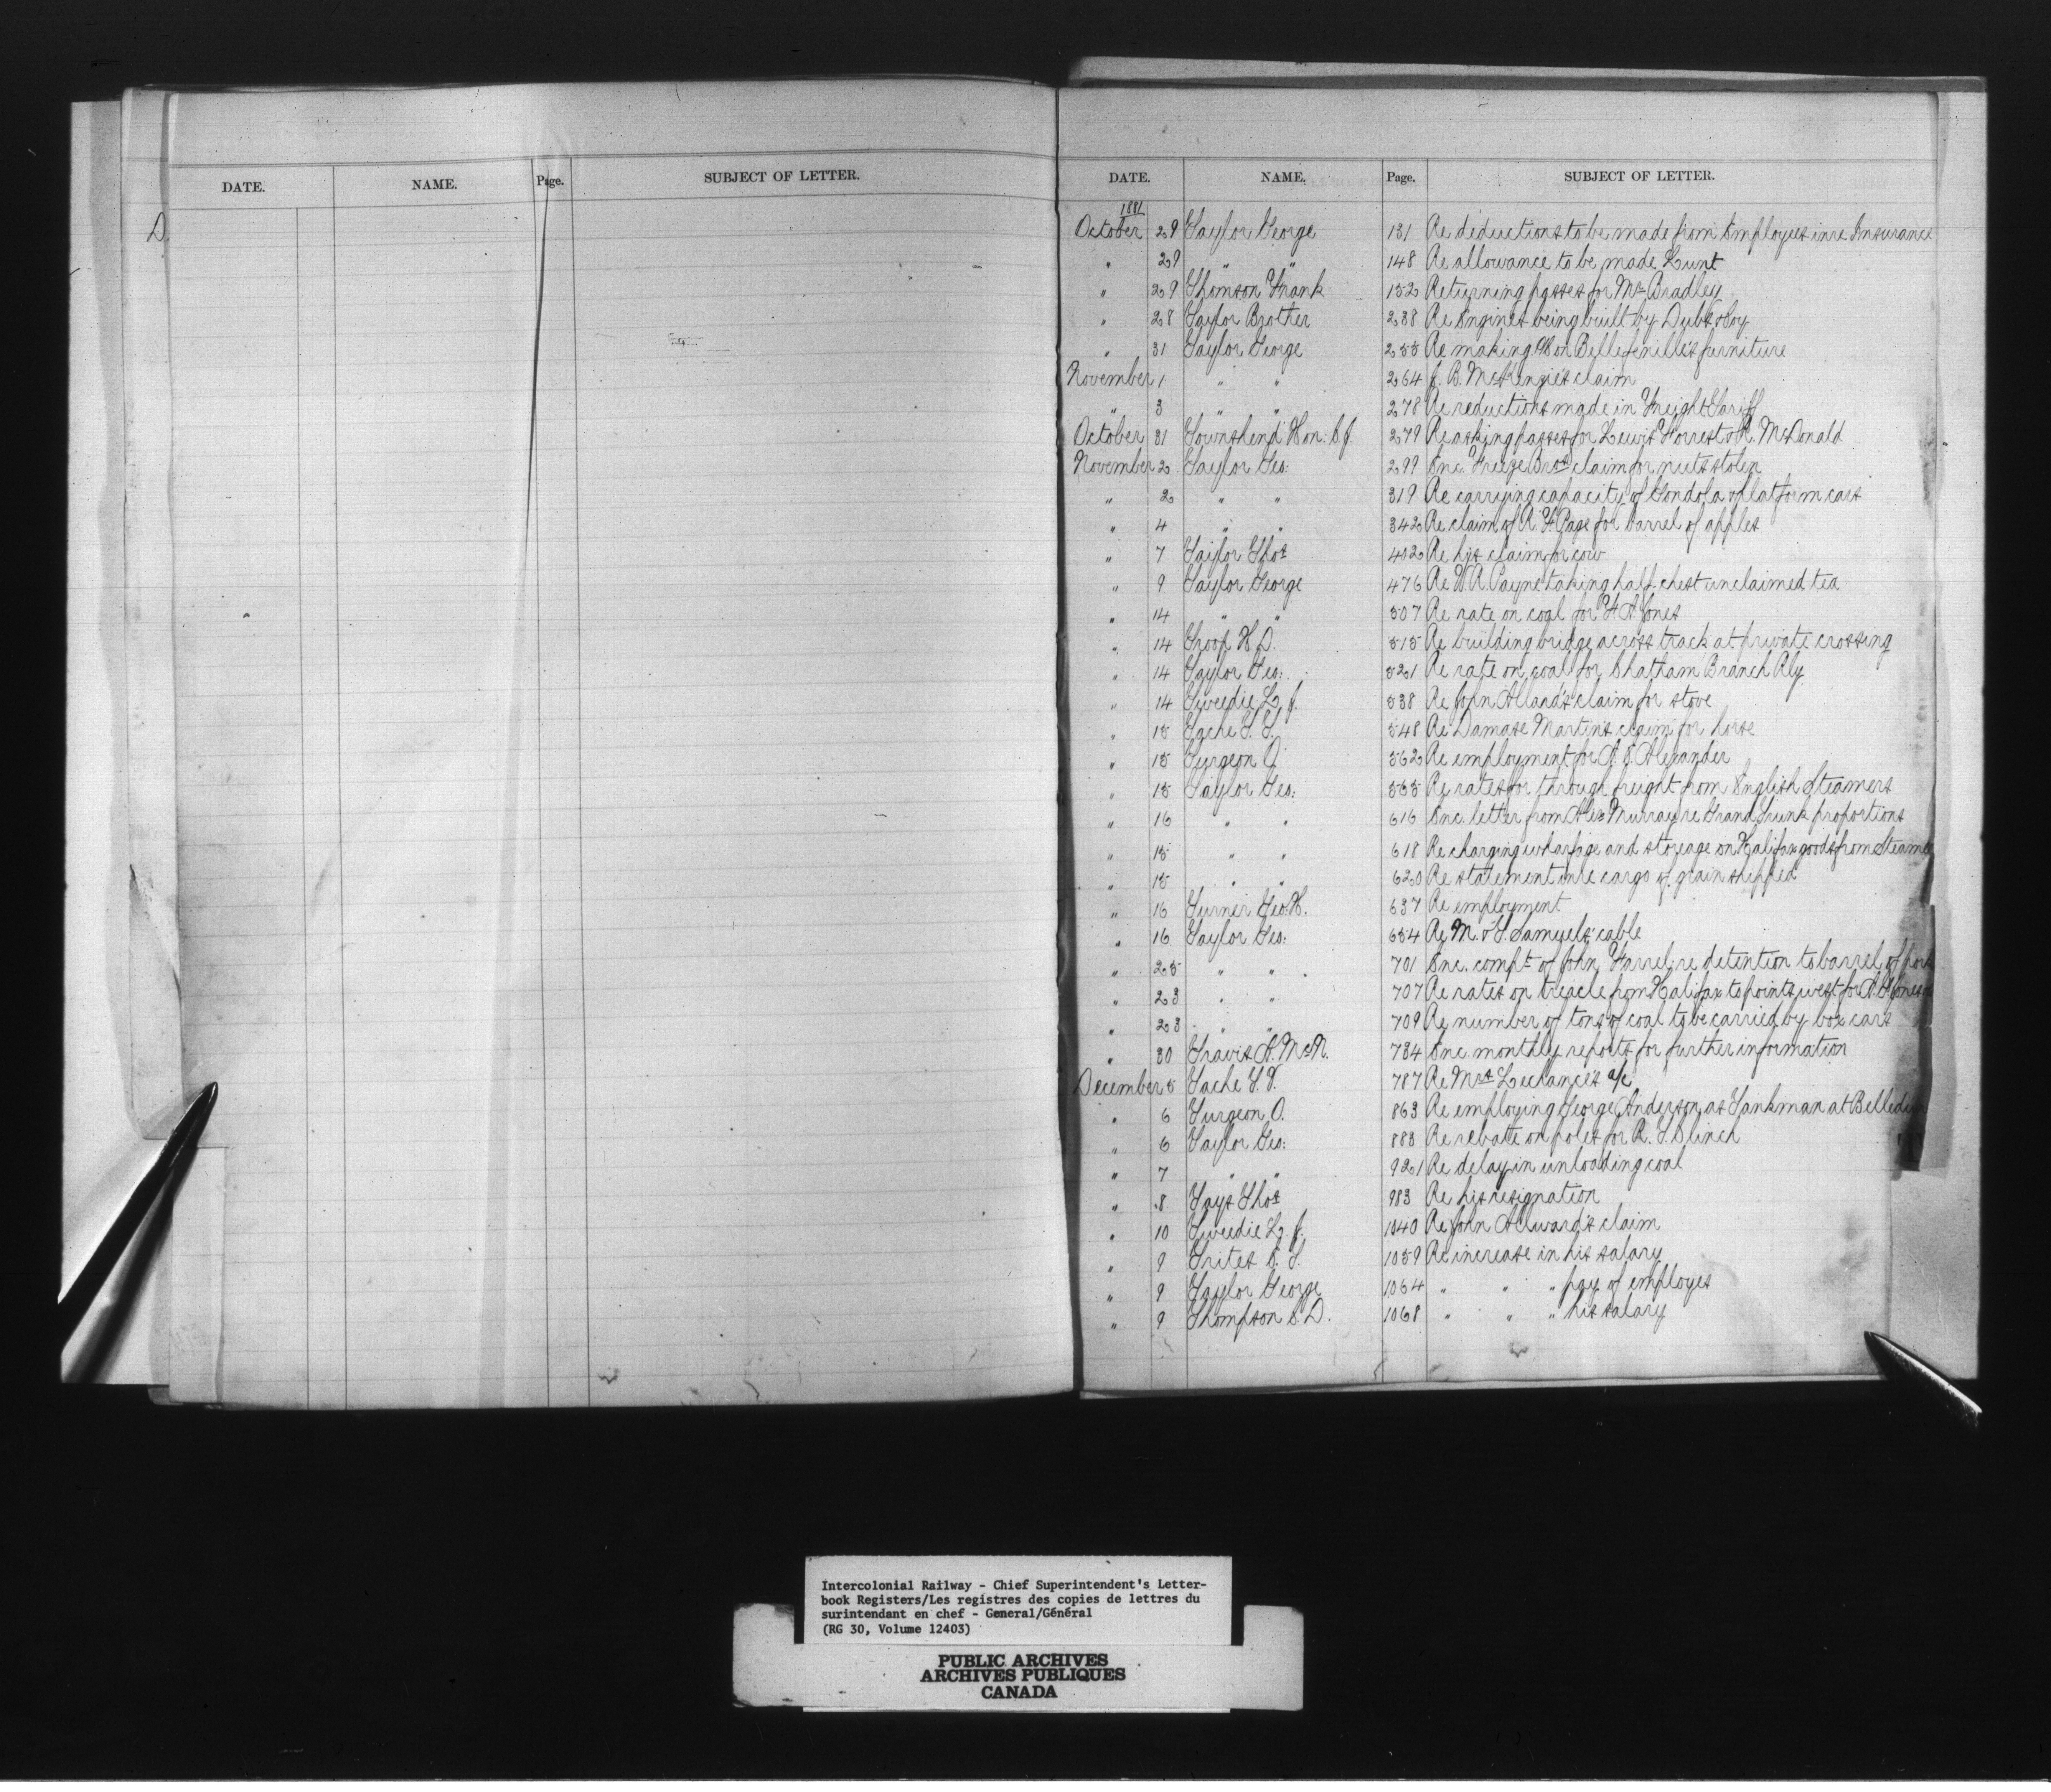 DATE. NAME. Page. SUBJECT OF LETTER.
D.
DATE. NAME. Page. SUBJECT OF LETTER.
1881
October 29 Taylor George 131 Re deductions to be made from Employees in re Insurance
" 29 " " 148 Re allowance to be made Lunt
" 29 Thomson Frank 152 Returning passes for Mr Bradley
" 28 Taylor Brother 238 Re Engines being built by Dubs & Coy
" 31 Taylor George 255 Re making on Bellefenille's furniture
November 1 " " 264 J. B. McKenzie's claim
" 3 " " 278 Re reductions made in Freight Tariff
October 31 Townshend Hon: C. J. 279 Re asking passes for Lewis Forrest & R. McDonald
November 2 Taylor Geo: 299 Enc. Freeze Bros claim for nuts stolen
" 2 " " 319 Re carrying capacity of Gondola & platform cars
" 4 " " 342 Re claim of R. F. Page for barrel of apples
" 7 Taylor Thos 402 Re his claim for cow
" 9 Taylor George 476 Re W. R. Payne taking half-chest unclaimed tea
" 14 " " 507 Re rate on coal for F. A. Jones
" 14 Troop H. D. 515 Re building bridge across track at private crossing
" 14 Taylor Geo: 521 Re rate on coal for Chatham Branch Rly
" 14 Tweedie L. J. 538 Re John Alland's claim for stove
" 15 Tache T. T. 548 Re Damase Martin's claim for horse
" 15 Turgeon O. 562 Re employment for Alexander
" 15 Taylor Geo: 585 Re rates for through freight from English Steamers
" 16 " " 616 Enc. letter from Alex Murray re Grand Trunk proportions
" 15 " " 618 Re charging wharfage and storage on Halifax goods from Steamer
" 15 " " 620 Re statement in re cargo of grain shipped
" 16 Turner Geo. H. 637 Re employment
" 16 Taylor Geo: 654 Re M. & S. Samuels' cable
" 25 " " 701 Enc. compt of John Farrel re detention to barrel of pork
" 23 " " 707 Re rates on treacle from Halifax to points west for A. G. Jones
" 23 " " 709 Re number of tons of coal to be carried by box cars
" 30 Travis A. McN. 734 Enc. monthly reports for further information
December 5 Tache T. T. 787 Re Mrs Lechance's a/c
" 6 Turgeon O. 863 Re employing George Anderson as Tankman at
" 6 Taylor Geo: 883 Re rebate on poles for R. T. Clinch
" 7 " " 921 Re delay in unloading coal
" 8 Tays Thos 983 Re his resignation
" 10 Tweedie L. J. 1040 Re John Allward's claim
" 9 Trites S. T. 1059 Re increase in his salary
" 9 Taylor George 1064 " " " pay of employes
" 9 Thompson C. D. 1068 " " " his salary
T
Intercolonial Railway - Chief Superintendent's Letter-
book Registers/Les registres des copies de lettres du
surintendant en chef - General/Général
(RG 30, Volume 12403)
PUBLIC ARCHIVES
ARCHIVES PUBLIQUES
CANADA